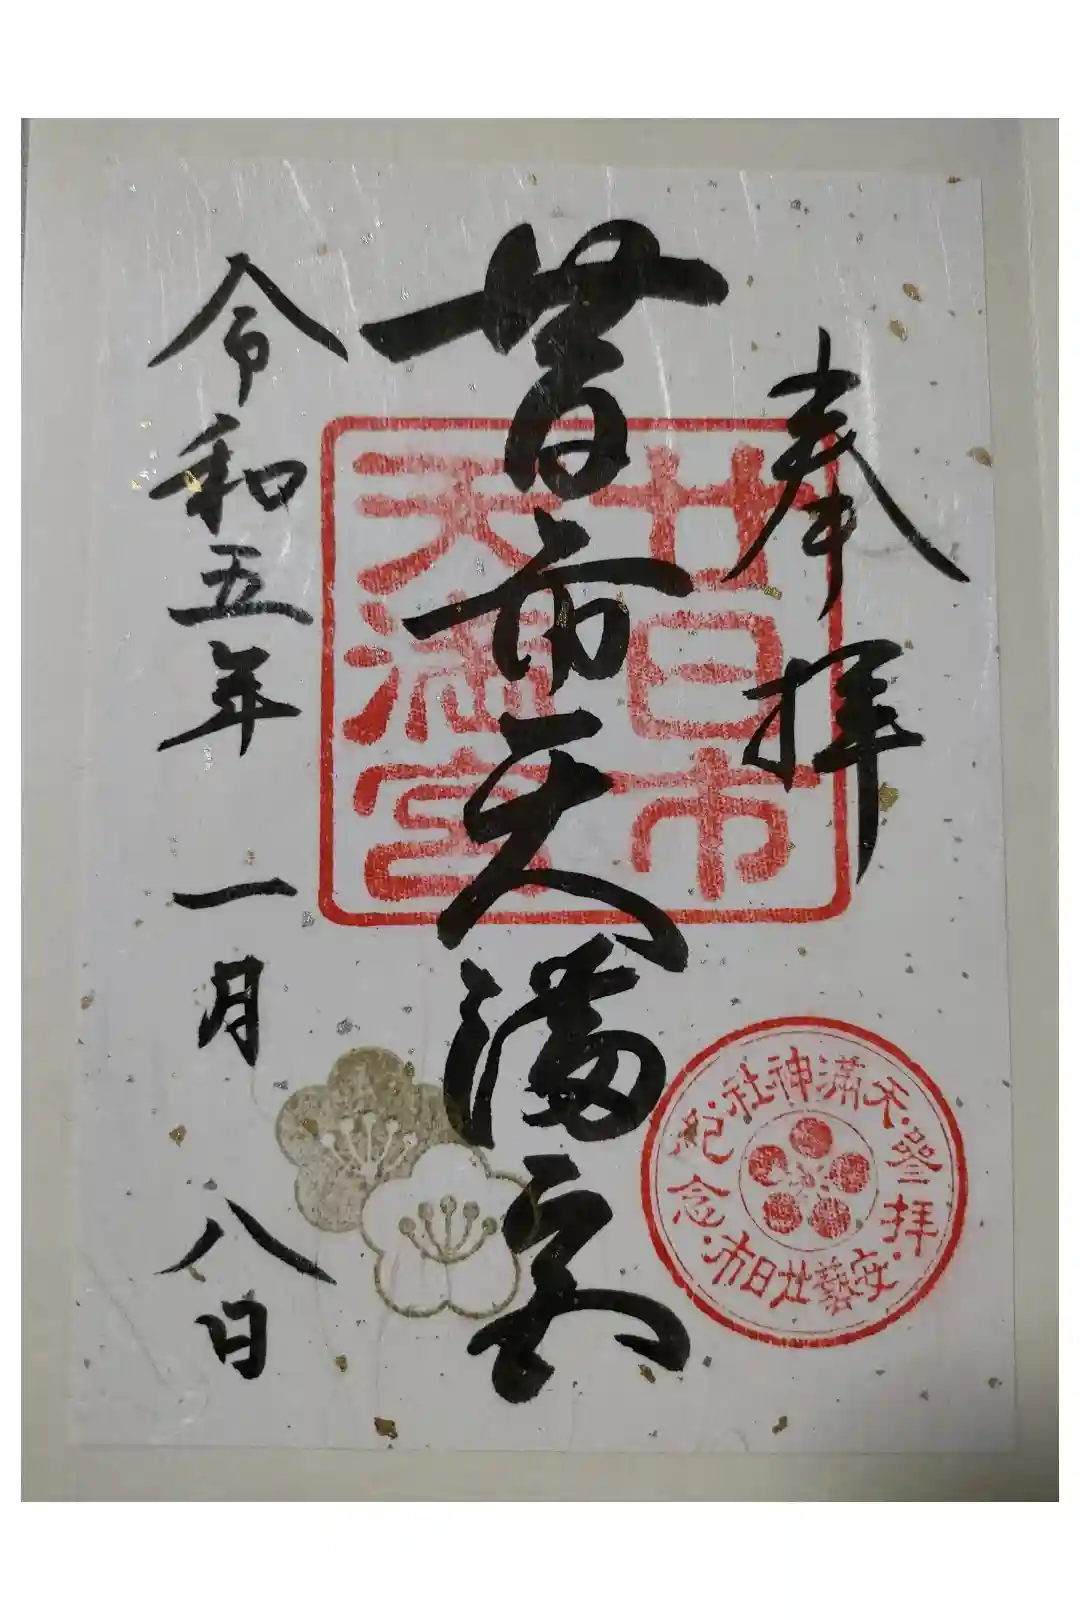 奉拝
廿日市天満宮
令和五年一月八日
廿日市
天満宮
天滿神社・參拝・安藝廿日市・紀念